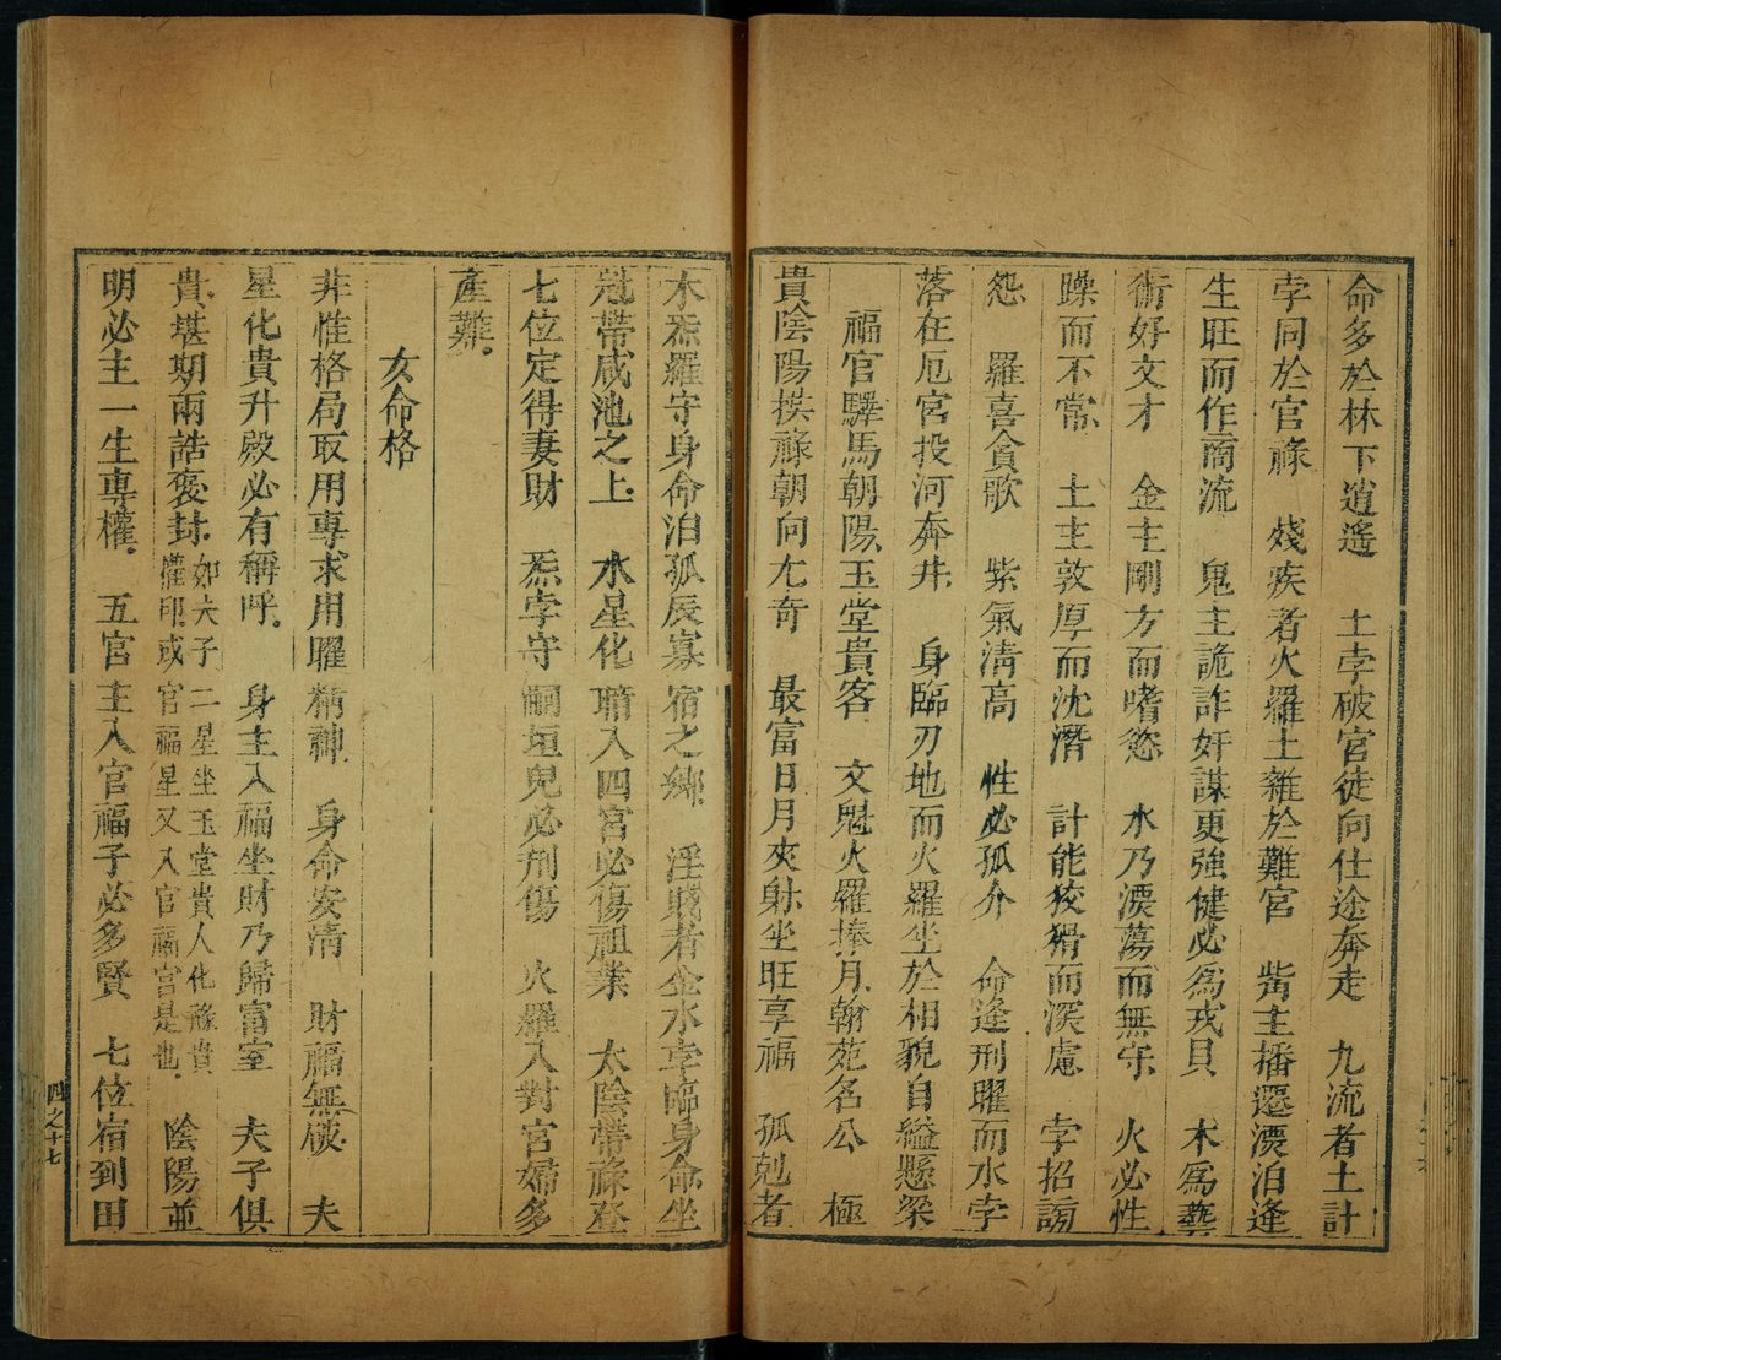 命多於林下逍遙　土孛破宮徒向仕途奔走　九流者土計
孛同於官祿　殘疾者火羅土雜於難宮　喾主播遷漂泊逢
生旺而作商流　鬼主詭詐奸謀更強健必為戎貝　木為藝
術好文才　金主剛方而嗜慾　水乃漂蕩而無守　火必性
躁而不常　土主敦厚而沈潛　計能狡猾而深慮　孛招謗
怨　羅喜貪歌　紫氣清高　性必孤介　命逢刑曜而水孛
落在厄宮投河奔井　身臨刃地而火羅坐於相貌自縊懸梁
福官驛馬朝陽玉堂貴客　文魁火羅捧月翰苑名公　極
貴陰陽拱祿朝向尤奇　最富日月夾財坐旺享福　孤剋者
木炁羅守身命泊孤辰寡宿之鄉　淫賤者金水孛臨身命坐
冠帶咸池之上　水星化暗入四宮必傷祖業　太陰帶祿登
七位定得妻財　炁孛守嗣垣兒必刑傷　火羅入對宮婦多
產難
女命格
非惟格局取用專求用曜精神　身命安清　財福無破　夫
星化貴升殿必有稱呼　身主入福坐財乃歸富室　夫子俱
貴堪期兩誥褒封如夫子二星坐玉堂貴人化祿貴
權印或官福星又入官福宮是也　陰陽並
明必主一生專權　五官主入官福子必多賢　七位宿到田
四之十七